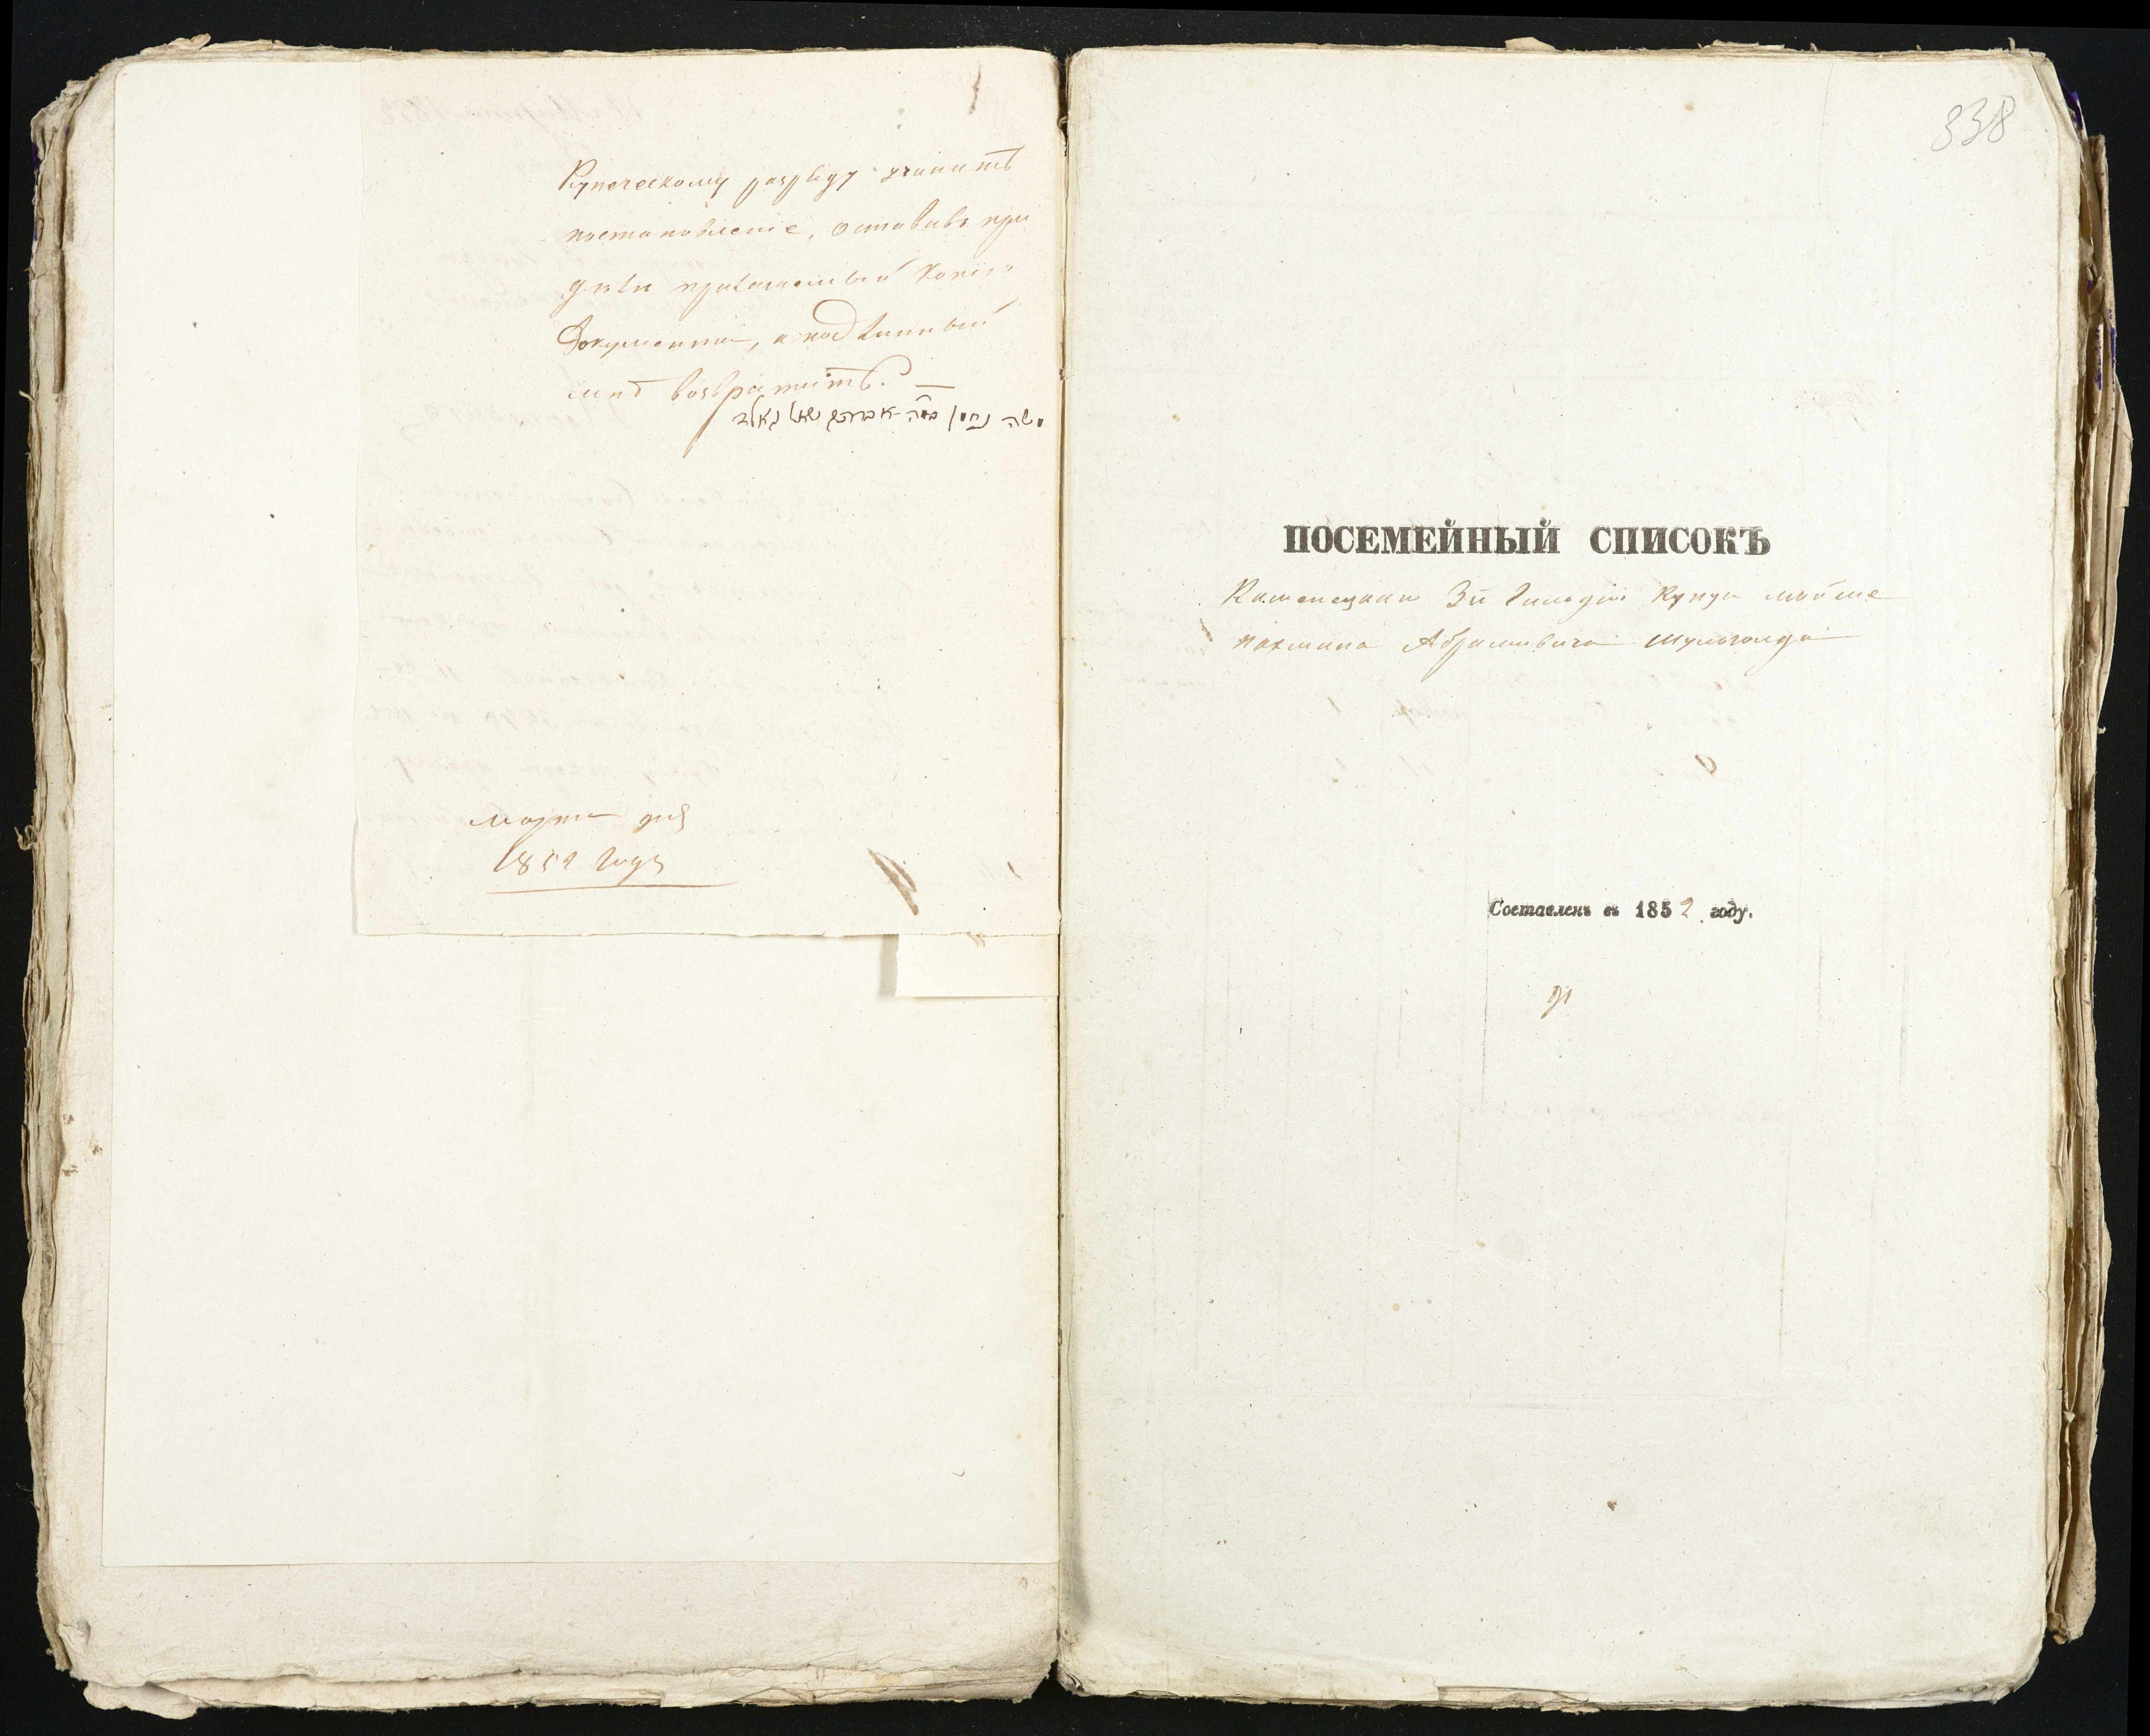 Купеческому разряду учинить
постановленіе, оставивъ при
дѣлѣ прилагаемый копіи
документа, а подлинный
мнѣ возвратить. —
משה נחמן
Марта дня
1852 года
338
ПОСЕМЕЙНЫЙ СПИСОКЪ
3й Гильдіи Купца Мойше
Нахмана Абрамовича Шульгольда
Составленъ въ 1852 году.